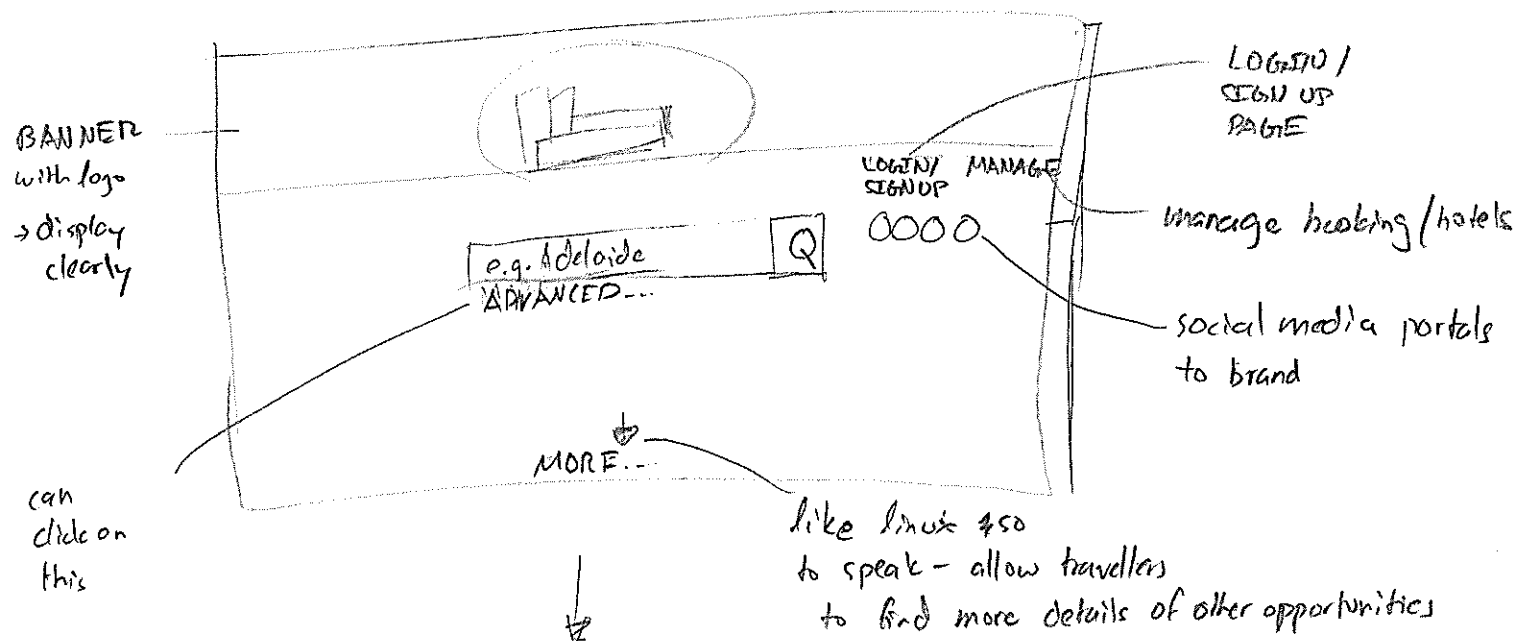 BANNER
with logo
→ display
clearly
LOGIN/
SIGN UP
PAGE
LOGIN/
SIGNUP
MANAGE
manage booking/hotels
e.g. Adelaide
Q
ADVANCED...
social media portals
to brand
can
click on
this
MORE...
like linux so
to speak – allow travellers
to find more details of other opportunities